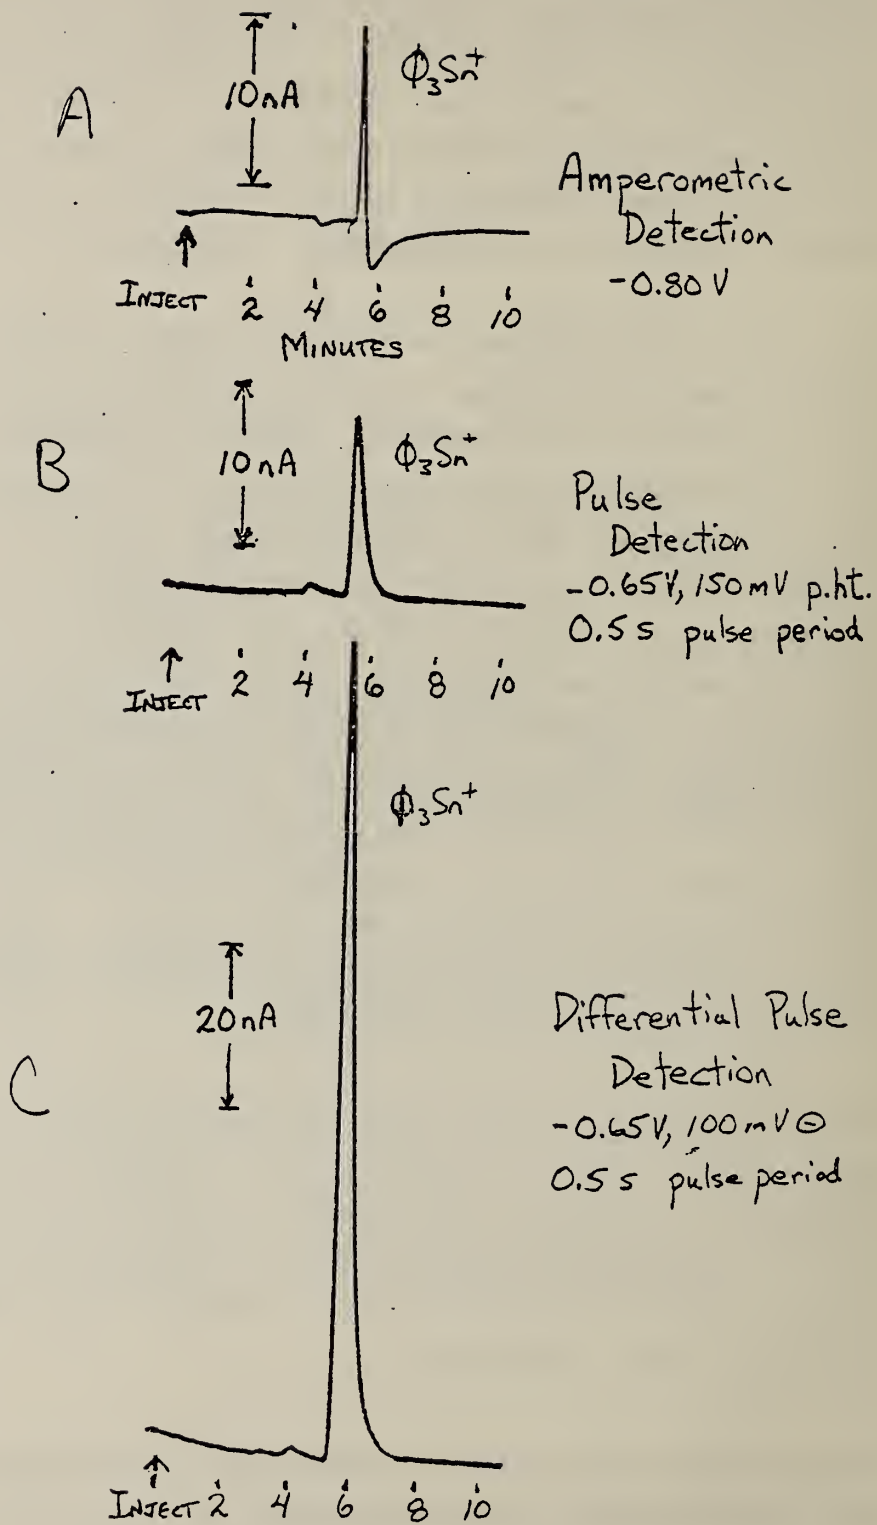 A
10nA
Φ₃Sn⁺
Amperometric
Detection
-0.80 V
INJECT 2 4 6 8 10
MINUTES
B
10nA
Φ₃Sn⁺
Pulse
Detection
-0.65V, 150mV p.ht.
0.5 s pulse period
INJECT 2 4 6 8 10
Φ₃Sn⁺
C
20nA
Differential Pulse
Detection
-0.65V, 100mV ⊖
0.5 s pulse period
INJECT 2 4 6 8 10